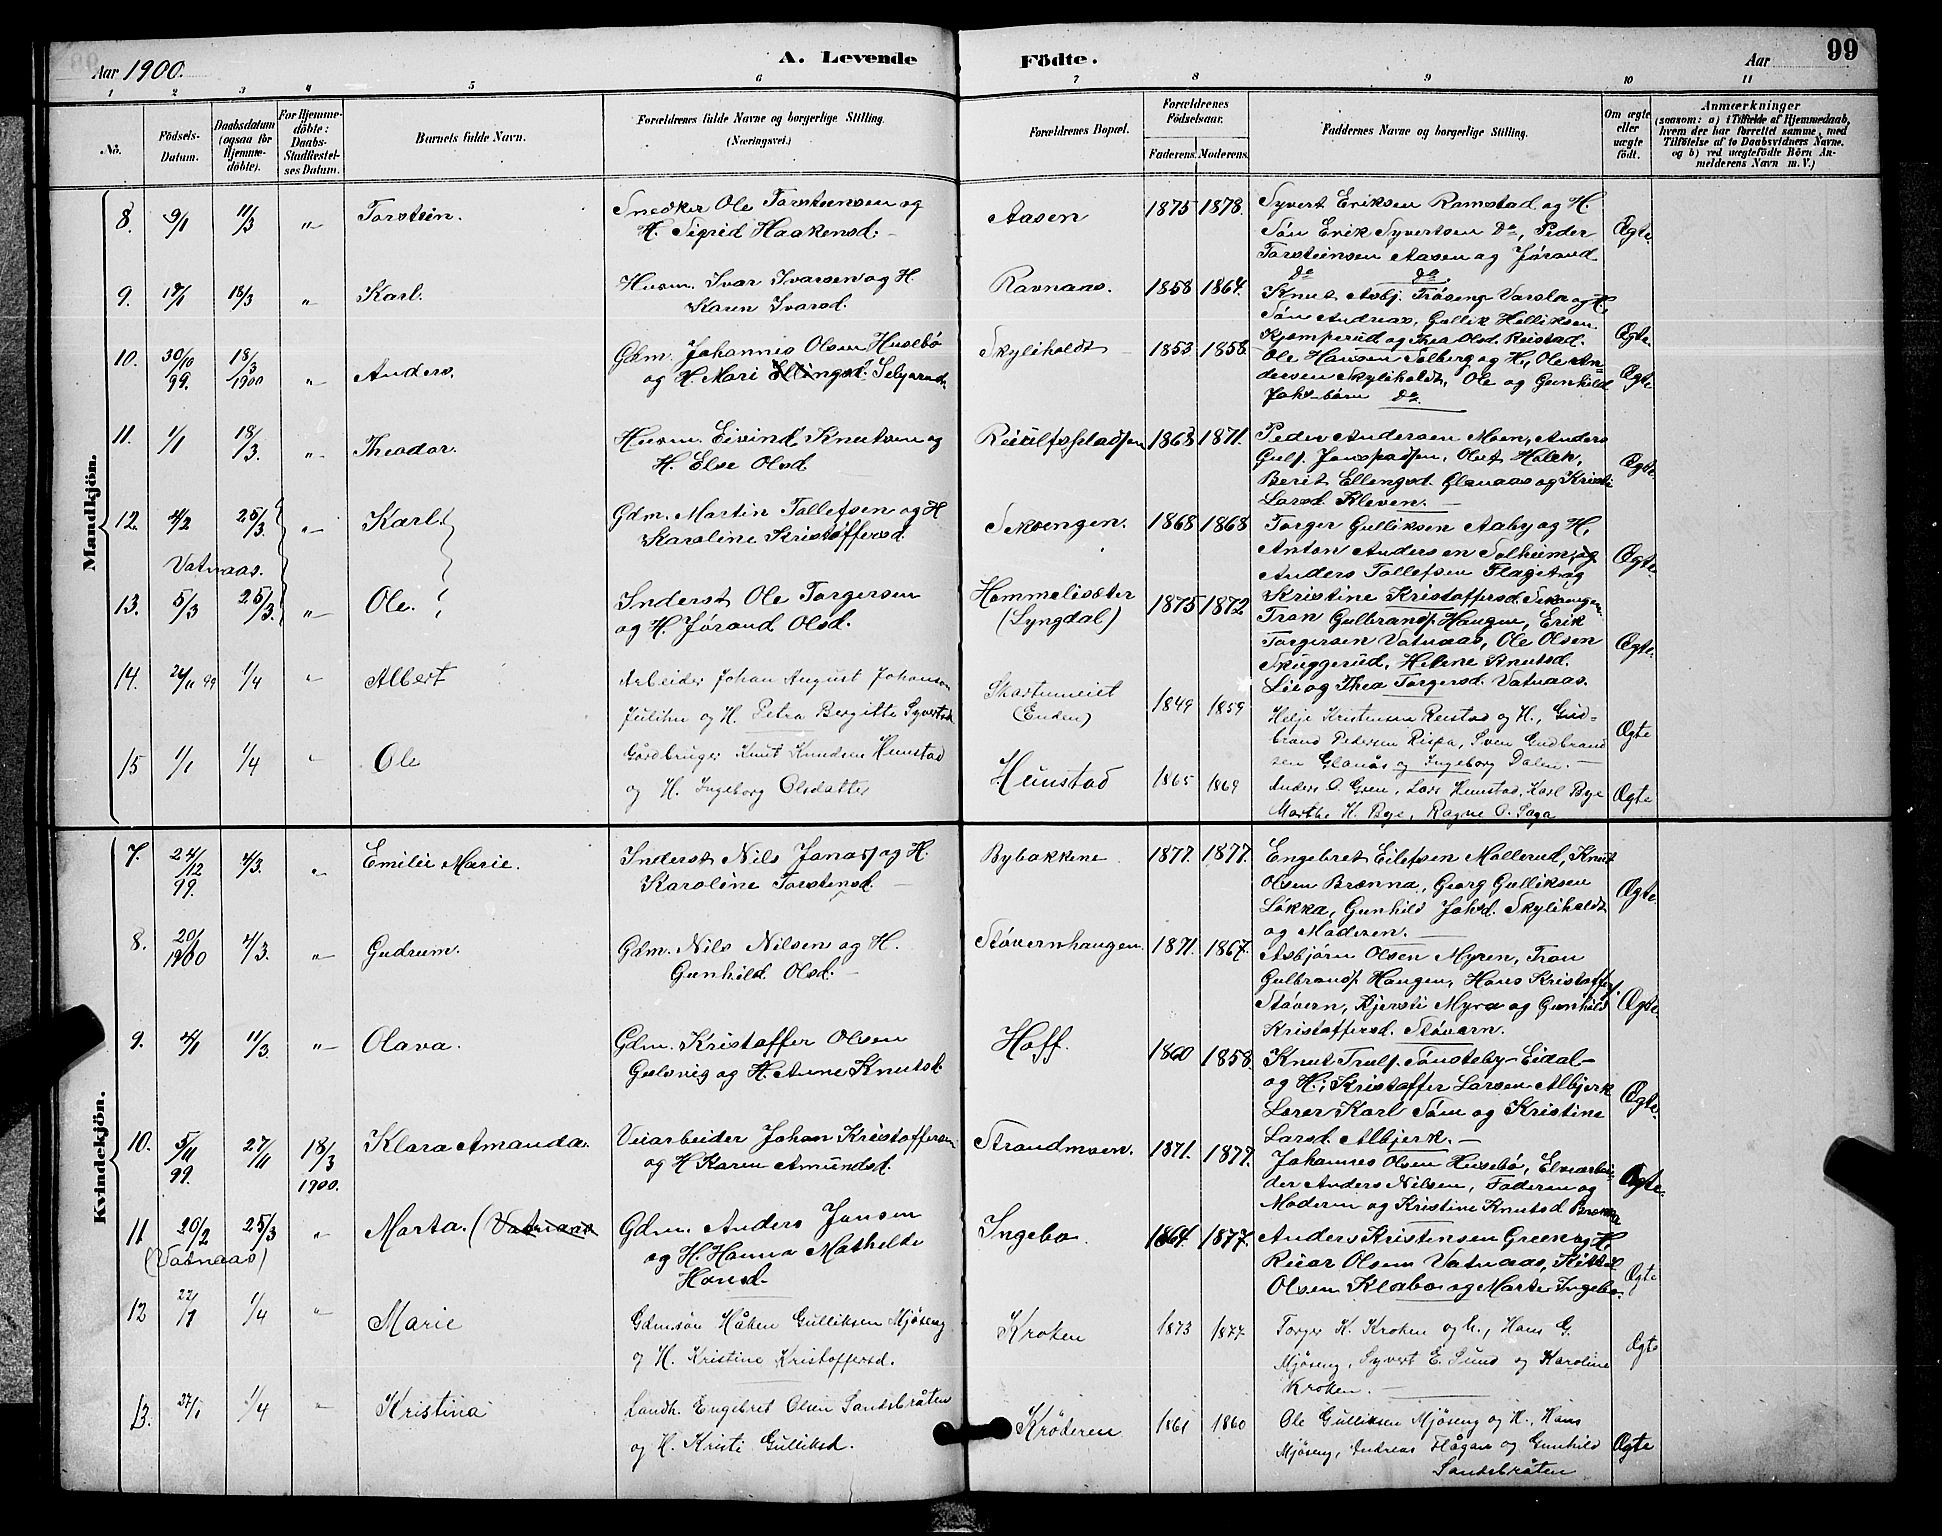 Aar 1900. A. Levende Födte. Aar 99
1 2 3 4 5 6 7 8 9 10 11
No. Födsels-Datum. Daabsdatum (ogsaa for Hjemme-döbte). For Hjemme-döbte: Daabs-Stadfæstel-ses Datum. Barnets fulde Navn. Forældrenes fulde Navne og borgerlige Stilling. (Næringsvei.) Forældrenes Bopæl. Forældrenes Födselsaar. Faderens. Moderens. Faddernes Navne og borgerlige Stilling. Om ægte eller uægte födt. Anmærkninger (saasom: a) i Tilfælde af Hjemmedaab, hvem der har forrettet samme, med Tilföielse af to Daabsvidners Navne. og b) ved uægtefödte Börn Anmelderens Navn m. V.)
Mandkjön.
8. 9/1 11/3 " Torstein. Snedker Ole Torsteinsen og Aasen 1875 1878. Syvert Eriksen Ramstad og H.
H. Sigrid Haakensd. Søn Erik Syvertsen Do, Peder Ægte.
Torsteinsen Aasen og Jørand
Do Do
9. 18/3 " Karl. Husm. Ivar Ivarsen og H. Ravnaas. 1858 1864. Knut Asbj. Trøseng Varslo og H.
Karen Ivarsd. Søn Andreas, Gullik Helliksen Ægte.
Kjemperud og Thea Olsd. Reistad.
10. 30/10 99. 18/3 1900 " Anders. Gdm. Johannis Olsen Husebö Skyliholdt 1853 1858. Ole Hansen Solberg og H, Ole An-
og H. Mari Ellingsd. dersen Skyliholdt, Ole og Gunhild Ægte
Johs-börn Do
11. 1/1 18/3. " Theodor. Husm. Eivind Knutsen og 1863 1871. Peder Andersen Moen, Anders
H. Else Olsd. Olaf Holen,
Berit Ellengsd. Glanaas og Kristi Ægte.
Larsd. Kleven.
12. 4/2 25/3. " Karl. Gdm. Martin Tollefsen og H Sekvengen. 1868 1868 Torger Gulliksen Aaby og H,
Karoline Kristoffersd. Anton Andersen Solheim og Ægte.
Vatnaas. Anders Tollefsen Flaget og
Kristine Kristoffersd. Sekvengen.
13. 5/3 25/3. " Ole. Inderst Ole Torgersen Hammelisæter 1875 1872 Tron Gulbrands. Haugen, Erik
og H. Jørand Olsd. (Lyngdal) Torgersen Vatnaas, Ole Olsen Ægte.
Skuggerud, Helene Knutsd.
Lie og Thea Torgersd. Vatnaas.
14. 26/11 99 1/4 " Albert Arbeider Johan August Johanson 1849 1859 Helje Kristensen Reistad og H., Gud-
og H. Petra Bergitte Syvertsd. (Enden) brand Pedersen Rispa, Sven Gudbrand Ægte
sen Glanås og Ingeborg Dalen.
15 1/1 1/4 " Ole Gårdbruger Knut Knudsen Hunstad Hunstad 1865 1869 Anders O. Green, Lars Hunstad, Karl Bye
og H. Ingeborg Olsdatter Marthe K. Bye, Ragne O. Saga Ægte
Kvindekjön.
7. 24/12 99. 4/3. " Emilie Marie. Inderst Nils Jonas. og H. Bybakkene 1877. 1877. Engebret Eilefsen Mollerud, Knut
Karoline Torstensd. Olsen Brænna, Georg Gulliksen Ægte.
Løkka, Gunhild Johsd. Skyliholdt
og Moderen.
8. 20/1 1900 4/3. " Gudrum. Gdm. Nils Nilsen og H. Støvernhaugen. 1871. 1867. Asbjørn Olsen Myren, Tron
Gunhild Olsd. Gulbrands. Haugen, Hans Kristoffers.
Støvern, Kjersti Myra og Gunhild Ægte.
Kristoffersd. Støvern.
9. 4/1 11/3. " Olava. Gdm. Kristoffer Olsen Hoff. 1860 1858. Knut Truls. Tønsteby-Eidal-
Gulsvig og H. Anne Knutsd. og H., Kristoffer Larsen Albjerk Ægte.
Lærer Karl Tóm og Kristine
Larsd. Albjerk.
10. 5/11 99. 27/11 18/3 1900. Klara Amanda. Veiarbeider Johan Kristoffersen Strandmoen. 1871. 1877. Johannes Olsen Husebö, Elvearbei-
og H Karen Amundsd. der Anders Nilsen, Faderen og Ægte.
Moderen og Kristine Knutsd. Brænna
11 20/2 25/3 " Marta. (Vatnaas Gdm. Anders Jensen Ingebo. 1864. 1877. Anders Kristensen Green og H,
(Vatnaas) og H. Hanna Mathilde Reiar Olsen Vatnaas, Kittil Ægte
Hansd. Olsen Klobo og Marte Ingebo.
12 22/1 1/4 " Marie Gdmsøn Håken Gulliksen Mjøseng Kroken 1873 1877 Torger K. Kroken og h., Hans G.
og H. Kristine Kristoffersd. Mjøseng, Syvert E. Lund og Karoline Ægte
Kroken.
13. 27/1 1/4 " Kristina Landh. Engebret Olsen Sandsbråten Krøderen 1861 1860 Ole Gulliksen Mjøseng og H., Hans
og H. Kristi Gulliksd. Mjøseng, Andreas Flågan og Gunhild Ægte
Sandsbråten